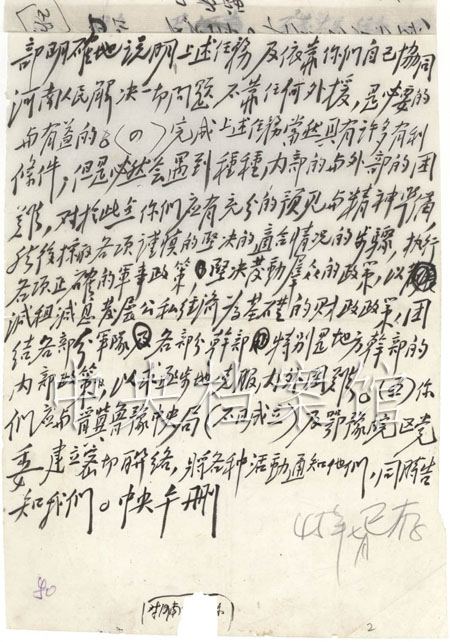 部明確地说明上述任務及依靠你们自己協同
河南人民解决一切问题不靠任何外援,是必要的
与有益的。(四)完成上述任務當然具有许多有利
條件,但是必然会遇到種種内部的与外部的困
难,对於此点你们应有充分的预见与精神準備,
採取各项谨慎的坚决的適合情况的步骤,执行
各项正確的軍事政策,坚决发动羣众的政策,以
減租減息发展公私经济为基礎的财政政策,团
结各部分軍隊及各部分幹部和特别是地方幹部的
内部政策,以求逐步地克服内外困难。(五)你
们应与晋冀鲁豫中央局(不日成立)及鄂豫皖区党
委建立密切联络,將各种活動通知他们,同時告
知我们。中央午删
中央档案馆
2